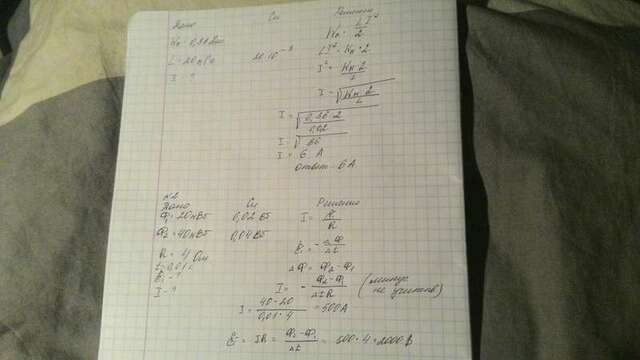 Дано Си Решение
Wм = 0,36 Дж Wм = LI²/2
L = 20 мГн 20·10⁻³ LI² = Wм·2
I - ? I² = Wм·2/L
I = √(Wм·2/L)
I = √(0,36·2/0,02)
I = √36
I = 6 A
Ответ: 6A
N2
Дано Си Решение
Ф₁ = 20 мВб 0,02 Вб I = Ɛ/R
Ф₂ = 40 мВб 0,04 Вб
Ɛi = -ΔФ/Δt
R = 4 Ом
t = 0,01 c ΔФ = Ф₂ - Ф₁
Ɛi - ?
I - ? I = - Ф₂-Ф₁/ΔtR (минус не учитыв)
I = 40-20/0,01·4 = 500 A
Ɛ = IR = Ф₂-Ф₁/Δt = 500·4 = 2000 В